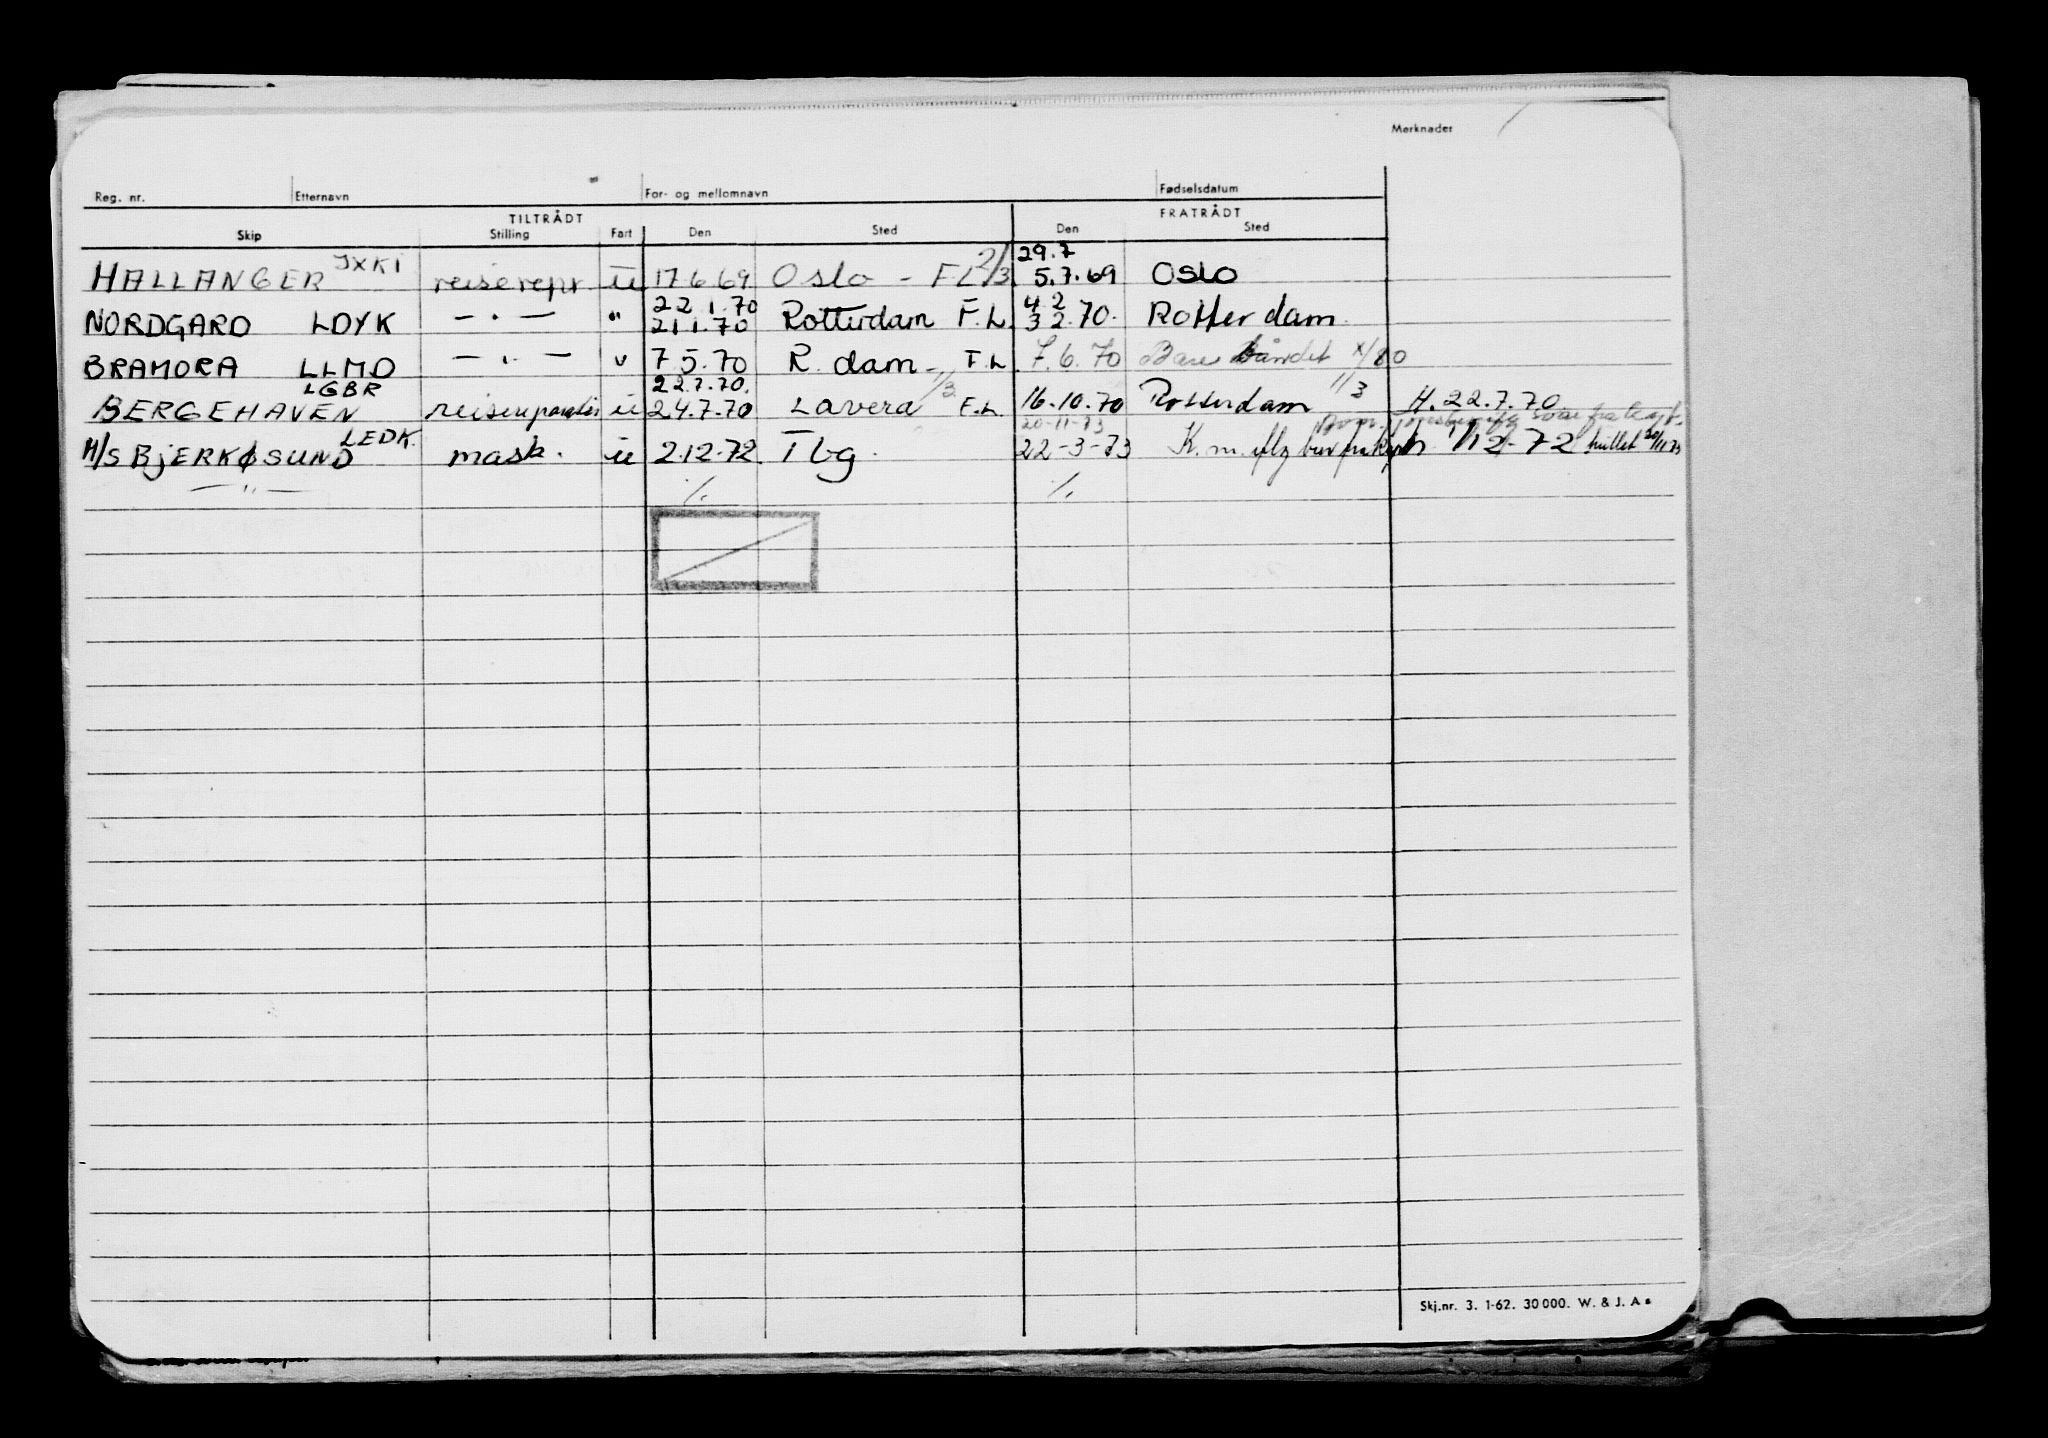 Merknader
Reg. nr. Etternavn For- og mellomnavn Fødselsdatum
TILTRÅDT FRATRÅDT
Skip Stilling Fart Den Sted Den Sted
29.7
HALLANGER JXKI reiserepr. u 17.6.69 Oslo - F.L. 2/3 5.7.69 Oslo
22.1.70 4 2
NORDGARD LDYK — . — " 21.1.70 Rotterdam F.L. 3 2.70. Rotterdam
BRAMORA LLMD — . — " 7.5.70 R.dam F.L. 7.6.70 x/80
LGBR 22.7.70. 1/3 11/3
BERGEHAVEN reisereparatør u 24.7.70 Lavera F.L. 16.10.70 Rotterdam H. 22.7.70
LEDK. 20-11-73
M/S BJERKØSUND mask. u 2.12.72 Tbg. 22-3-73 K.m. 1/12-72 hullet 20/11 73
— " — ./. ./.
Skj.nr. 3. 1-62. 30 000. W. & J. As